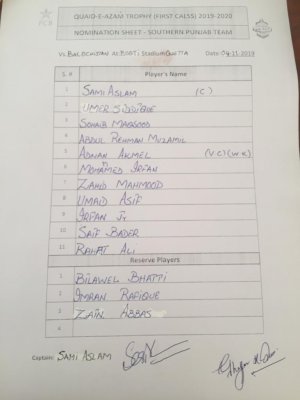 PCB
QUAID-E-AZAM TROPHY (FIRST CALSS) 2019-2020
NOMINATION SHEET - SOUTHERN PUNJAB TEAM
Vs. BALOCHISTAN At. BUGTI Stadium QUETTA Date: 04-11-2019
S. # Player's Name
1 SAMI ASLAM (C)
2 UMER SIDDIQUE
3 SOHAIB MAQSOOD
4 ABDUL REHMAN MUZAMIL
5 ADNAN AKMEL (V.C) (W.K)
6 MOHAMED IRFAN
7 ZAHID MAHMOOD
8 UMAID ASIF
9 IRFAN Jr
10 SAIF BADER
11 RAHAT ALI
Reserve Players
1 BILAWEL BHATTI
2 IMRAN RAFIQUE
3 ZAIN ABBAS
4
Captain: SAMI ASLAM